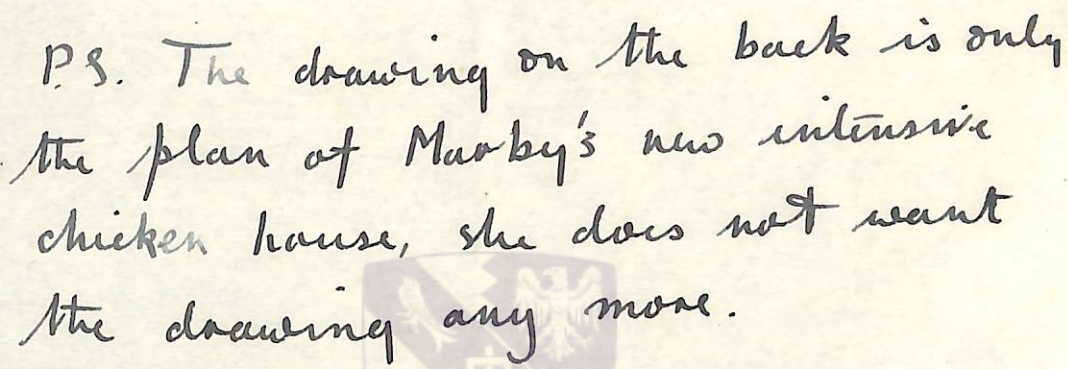 P.S. The drawing on the back is only
the plan of Marby's new intensive
chicken house, she does not want
the drawing any more.